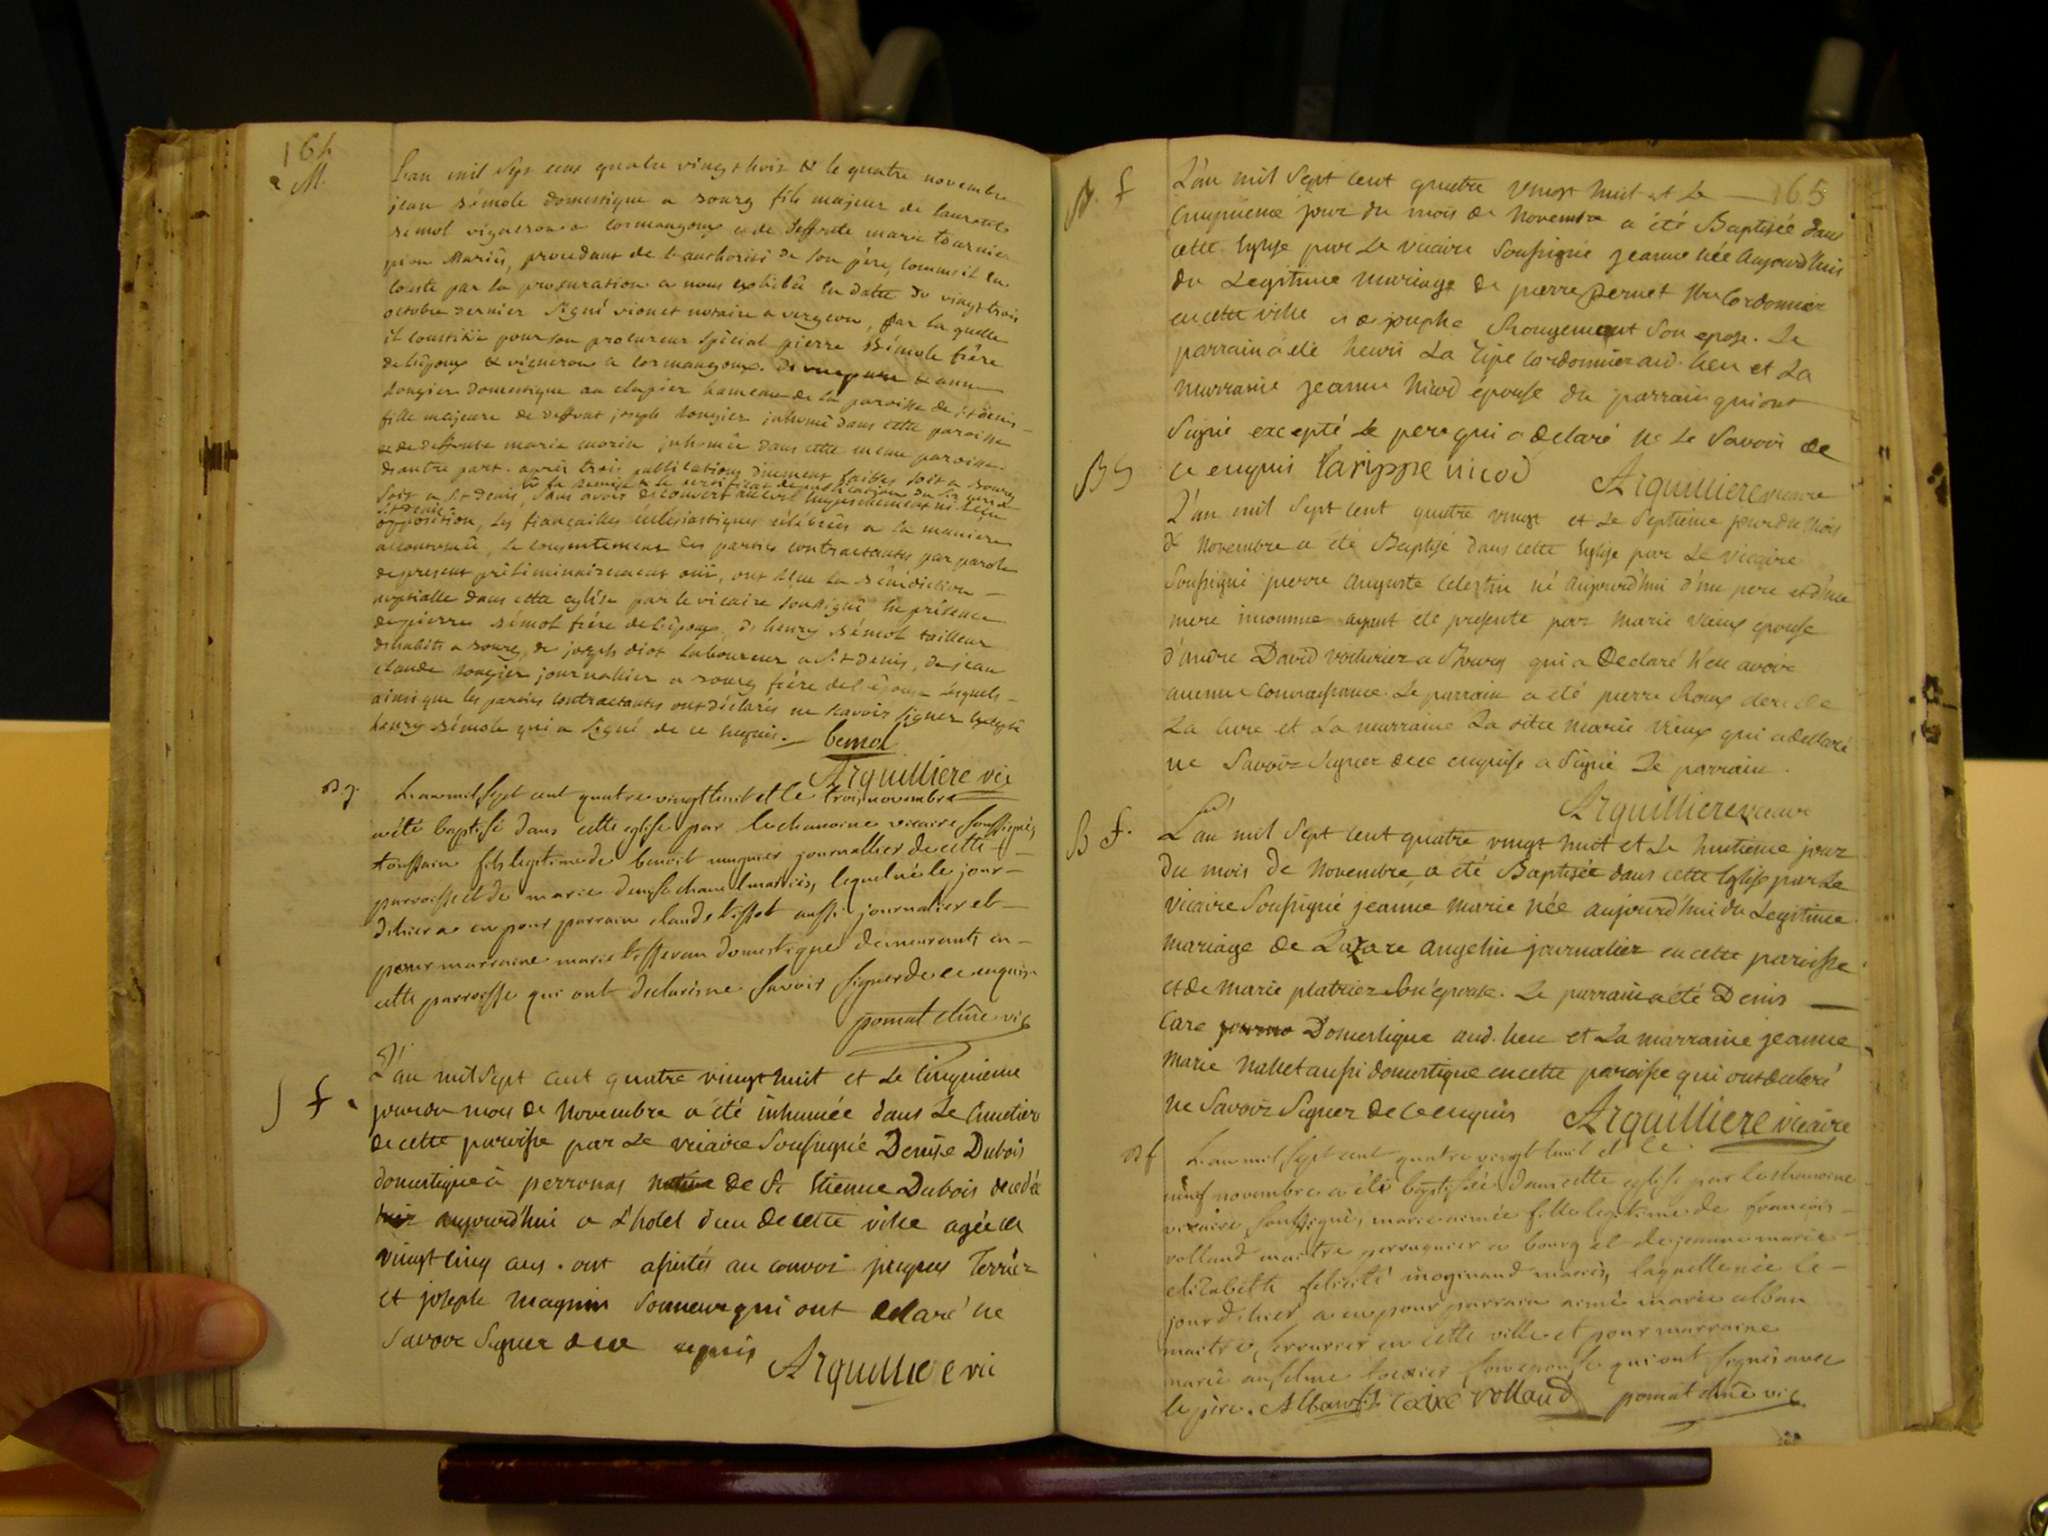 164
M.
L'an mil sept cent quatre vingt huit & le quatre novembre
jean Bémole domestique a Bourg fils majeur de laurent
Bemol vigneron a Cormangoux & de deffunte marie tournier
procedant de l'authorité de son père, comme il en
conste par la procuration a nous exhibée en datte du vingt trois
octobre dernier signé vionet notaire a verjeon, par la quelle
il constitue pour son procureur spécial pierre Bémole frère
de l'époux & vigneron a Cormangoux. & anne
bongier domestique au clapier hameau de la paroisse de st denis
fille majeure de deffunt joseph bongier inhumé dans cette paroisse
& de deffunte marie morin inhumée dans cette meme paroisse
d'autre part. après trois publications duement faittes soit a Bourg
vu la remise & le certificat de publication du Sr curé
soit a St denis, sans avoir découvert aucuns empeschement ni reçu
St denis
opposition, les fiançailles éclésiastiques célébrées a la maniere
accoutumée, le consentement des parties contractantes par parole
de present préliminairement oui, ont reçu la Bénédiction
nuptialle dans cette eglise par le vicaire soussigné en présence
de pierre Bémol frère de l'époux, d'henry Bémol tailleur
d'habits a Bourg, de joseph diot laboureur a St denis, de jean
claude bongier journalier a Bourg frère de l'épouse lesquels
ainsi que les parties contractantes ont déclarés ne savoir signer excepté
henry Bémole qui a signé de ce enquis. bemol
Arquilliere vic
B. g.
L'an mil sept cent quatre vingt huit et le trois novembre
a été baptisé dans cette eglise par le chanoine vicaire soussigné,
toussain fils legitime de benoit mugnier journallier de cette
parroisse et de marie denise chanel mariés, lequel né le jour
d'hier a eu pour parrain claude tissot aussi journalier et
pour marraine marie tissevan domestique demeurants en
cette parroisse qui ont declarés ne savoir signer de ce enquis
pomat chne vic
J f
L'an mil sept cent quatre vingt huit et Le Cinquieme
jour du mois de Novembre a été inhumée dans Le Cimetiere
de cette paroisse par Le vicaire Soussigné Denise Dubois
domestique à perronas native de St Etienne Dubois decedée
aujourd'hui a L'hotel dieu de cette ville agée de
vingt cinq ans. ont assistés au convoi jacques Terrier
et joseph magnin Sonneurs qui ont declaré ne
Savoir Signer de ce enquis Arquilliere vic
165
B. f
L'an mil Sept cent quatre vingt huit et Le
Cinquieme jour du mois de Novembre a été Baptisée dans
cette Eglise par Le vicaire Soussigné jeanne née Aujourd'hui
du Legitime mariage de pierre Pernet Mre Cordonnier
en cette ville et de josephe Rougemont Son epose. Le
parrain a été henri La ripe Cordonnier aud. lieu et La
marraine jeanne Nicod épouse du parrain qui ont
Signé excepté Le pere qui a declaré ne Le Savoir de
ce enquis Larippe nicod Arquilliere vicaire
B G
L'an mil Sept cent quatre vingt et Le Septieme jour du Mois
de Novembre a été Baptisé dans cette Eglise par Le vicaire
Soussigné pierre auguste Celestin né aujourd'hui d'un pere et d'une
mere inconnue ayant été presenté par Marie vieux epouse
d'andre David voiturier a Bourg qui a Declaré N'en avoir
aucune connaissance. Le parrain a été pierre Roux clerc de
La Cure et La marraine La dite Marie vieux qui a declaré
ne Savoir Signer de ce enquise a Signé Le parrain.
Arquilliere vicaire
B f.
L'an mil Sept cent quatre vingt huit et Le huitieme jour
du mois de Novembre a été Baptisée dans cette Eglise par Le
vicaire Soussigné jeanne marie née aujourd'hui du Legitime
mariage de Lazare angelin journalier en cette paroisse
et de marie platrier Son épouse. Le parrain a été Denis
Care Domestique aud. lieu et La marraine jeanne
marie Nallet aussi domestique en cette paroisse qui ont declaré
ne Savoir Signer de ce enquis Arquilliere vicaire
B f
L'an mil sept cent quatre vingt huit et le
neuf novembre a été baptisée dans cette eglise par le chanoine
vicaire soussigné, marie aimée fille legitime de françois
volland maitre perruquier a bourg et de jeanne marie
elizabeth felicité moginand mariés, laquelle née le
jour d'hier a eu pour parrain aimé marie alban
maitre serrurier en cette ville et pour marraine
marie anselme son epouse qui ont signés avec
le père. Alban volland pomat chne vic